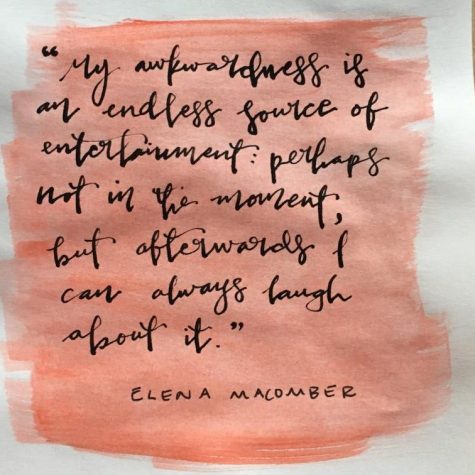 “My awkwardness is
an endless source of
entertainment: perhaps
not in the moment,
but afterwards I
can always laugh
about it.”
ELENA MACOMBER